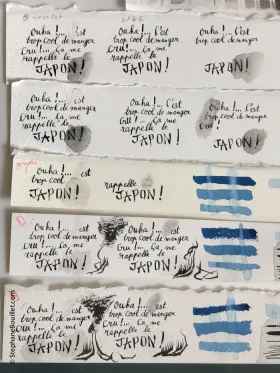 Ouha!... C'est
trop cool de manger
Cru!... Ça me
rappelle le
JAPON!
Ouha!... C'est
trop cool de manger
Cru!... Ça me
rappelle le
JAPON!
Ouha!... C'est
trop cool de manger
JAPON!
Ouha!... C'est
trop cool de manger
Cru!... Ça me
rappelle le
JAPON!
Ouha!... C'est
trop cool de manger
Cru!... Ça me
rappelle le
JAPON!
Ouha!... C'est
trop cool de manger
Cru!
JAPON!
Ouha!... est
trop cool
JAPON!
rappelle
JAPON!
Ouha!... est
trop cool de manger
Cru!... Ça me
rappelle le
JAPON!
Ouha!... est
trop cool de manger
Cru!... Ça me
rappelle le
JAPON!
Ouha!... est
trop cool de manger
Cru!... Ça me
rappelle le
JAPON!
Ouha!... est
trop cool de manger
Cru!... Ça me
rappelle le
JAPON!